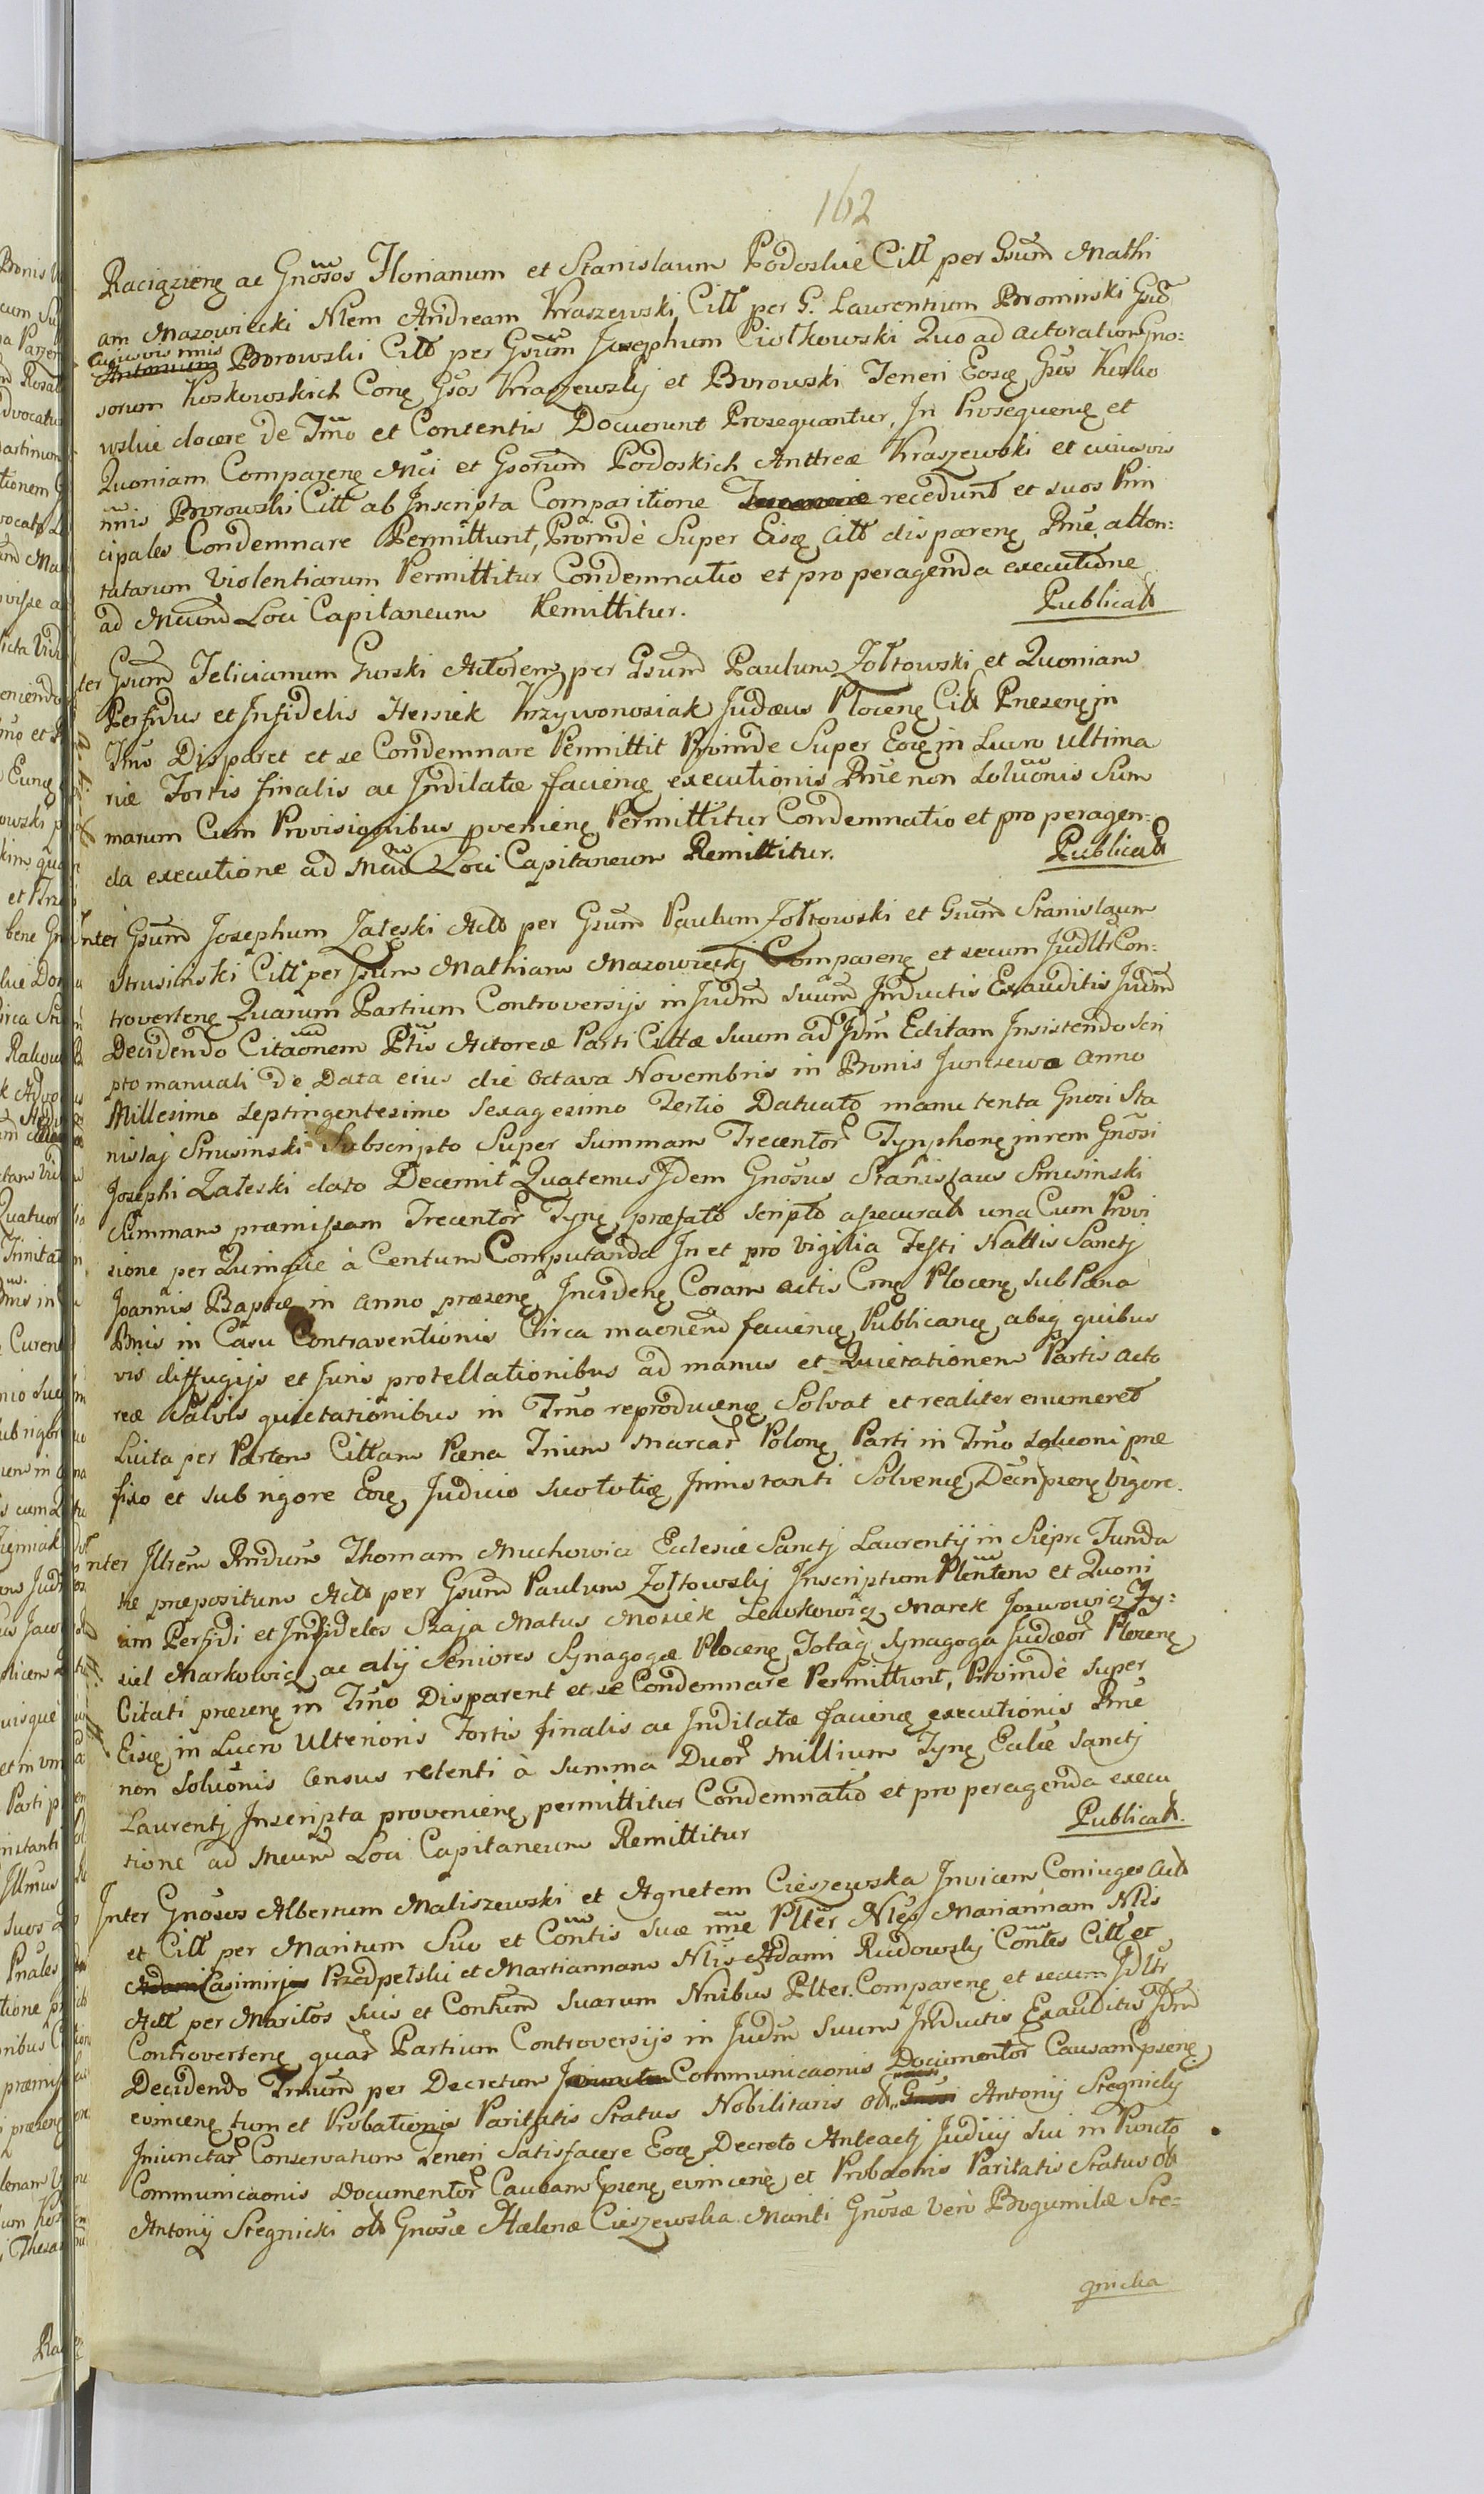 162
Raciązienę ac Gnosos Florianum et Stanislaum Podoskie Citt per Gsum Mathi
am Mazowiecki Nlem Andream Kraszewski Citt per G. Laurentium Bromirski Gsũ
cuiusvis nnis
Antonium Borowski Citt per Gsum Josephum Ciołkowski Quo ad actorationem Gno:
sorum Koskowskich Conę Gsos Kraszewskj et Borowski Teneri Eosę Gsos Kosko
wskie docere de Tmo et Contentis Docuerunt Prosequantur, In Prosequenę et
Quoniam Comparenę Mci et Gsorum Podoskich Andreæ Kraszewski et cuiusvis
nnis Borowski Citt ab Inscripta Comparitione recedunt et suos Prin
cipales Condemnare Permittunt, Proindè Super Eisę Citt disparenę Pnæ atten:
tatarum violentiarum Permittitur Condemnatio et pro peragenda executione
ad Mcum Loci Capitaneum Remittitur.
Publicat
ter Gsum Felicianum Gurski Actorem per Gsum Paulum Zołtowski et Quoniam
Perfidus et Infidelis Hersiek Krzywonosiak Judæus Plocenę Citt Presenę in
Tmo Disparet et se Condemnare Permittit Proinde Super Eoę in Lucro ultima
riæ Fortis finalis ac Indilatæ facienę executionis Pnæ non Solutionis Sum
marum Cum Provisionibus pvenienę Permittitur Condemnatio et pro peragen:
da executione ad Mcum Loci Capitaneum Remittitur.
Publicat
nter Gsum Josephum Zaleski Act per Gsum Paulum Zołtowski et Gsum Stanislaum
Strusinski Citt per Gsum Mathiam Mazowieckj Comparenę et secum Judltr Con:
trovertenę Quarum Partium Controversijs in Judm suum Inductis Exauditis Judm
Decidendo Citaonem Ptis Actoreæ Parti Cittæ suum ad Idm Editam Insistendo Scri
pto manuali de Data eius die octava Novembris in Bonis Juriszewo anno
Millesimo Septingentesimo Sexagesimo Tertio Datuato manu tenta Gnosi Sta
nislaj Strusinski Subscripto Super Summam Trecentor Tynphonę in rem Gnosi
Josephi Zaleski dato Decernit Quatenus Idem Gnosus Stanislaus Strusinski
Summam præmissam Trecentor Tynę, præfato scripto assecurat una Cum Provi
sione per Quinque à Centum Computanda In et pro Vigilia Festi Nattis Sanctj
Joannis Baptæ in anno præsenę, Incidenę Coram actis Cnę Plocenę sub Pæna
Bnis in Casu Contraventionis Circa maonem facienę, Publicanę, absq quibus
vis diffugijs et Juris protellationibus ad manus et Quietationem Partis acto
reæ Salvis quietationibus in Tmo reproducenę Solvat et realiter enumeret
Luita per Partem Cittam Pæna Trium Marcar Polonę Parti in Tmo Solutioni præ
fixo et sub rigore Eoę, Judicio suo totię, Ininstanti Solvenę, Decri psenę vigore.
nter Illrem Rndum Thomam Muchowicz Eclesiæ Sanctj Laurentij in Sieprc Funda
tæ præpositum Act per Gsum Paulum Zołtowskj Inscriptum Plentem et Quoni
am Perfidi et Infideles Szaja Matus Mosiek Lewkowicz Marek Jozwowicz Zy:
siel Markowicz ac alij Seniores Synagogæ Plocenę Totaq Synagoga Judæor Plocenę
Citati præsenę in Tmo Disparent et se Condemnare Permittunt, Proindè super
Eisę in Lucro Ulterioris Fortis finalis ac Indilatæ facienę executionis Pnæ
non Solutionis Census retenti à Summa Duor Millium Tynę Ecliæ Sanctj
Laurentj Inscripta provenienę, permittitur Condemnatio et pro peragenda execu
tione ad Mcum Loci Capitaneum Remittitur
Publicat.
Inter Gnosos Albertum Maliszewski et Agnetem Cieszewska Invicem Coniuges Act
et Citt per Maritum Suo et Contis Suæ nnæ Plter Nles Mariannam Nlis
Adami Casimirj Przedpełski et Mariannam Nlis Adami Rudowskj Contes Citt et
Act per Maritos Suis et Contum Suarum Nnibus Plter. Comparenę et secum Jdltr
Controvertenę quar Partium Controversijs in Judm Suum Inductis Exauditis Jdm
Decidendo Tnium per Decretum Communicaonis Documentor Causam psenę
evincenę tum et Probationis Paritatis Status Nobilitaris olt Gnosi Antonij Stegnickj
Iniunctar Conservatum Teneri Satisfacere Eoę Decreto Anteactj Judicij Sui in Puncto
Communicaonis Documentor Causam psenę, evincenę, et Probaonis Paritatis Status olt
Antonij Stegnicki olt Gnosæ Helenæ Cieszewska Mariti Gnosæ verò Bogumilæ Ste=
gnicka